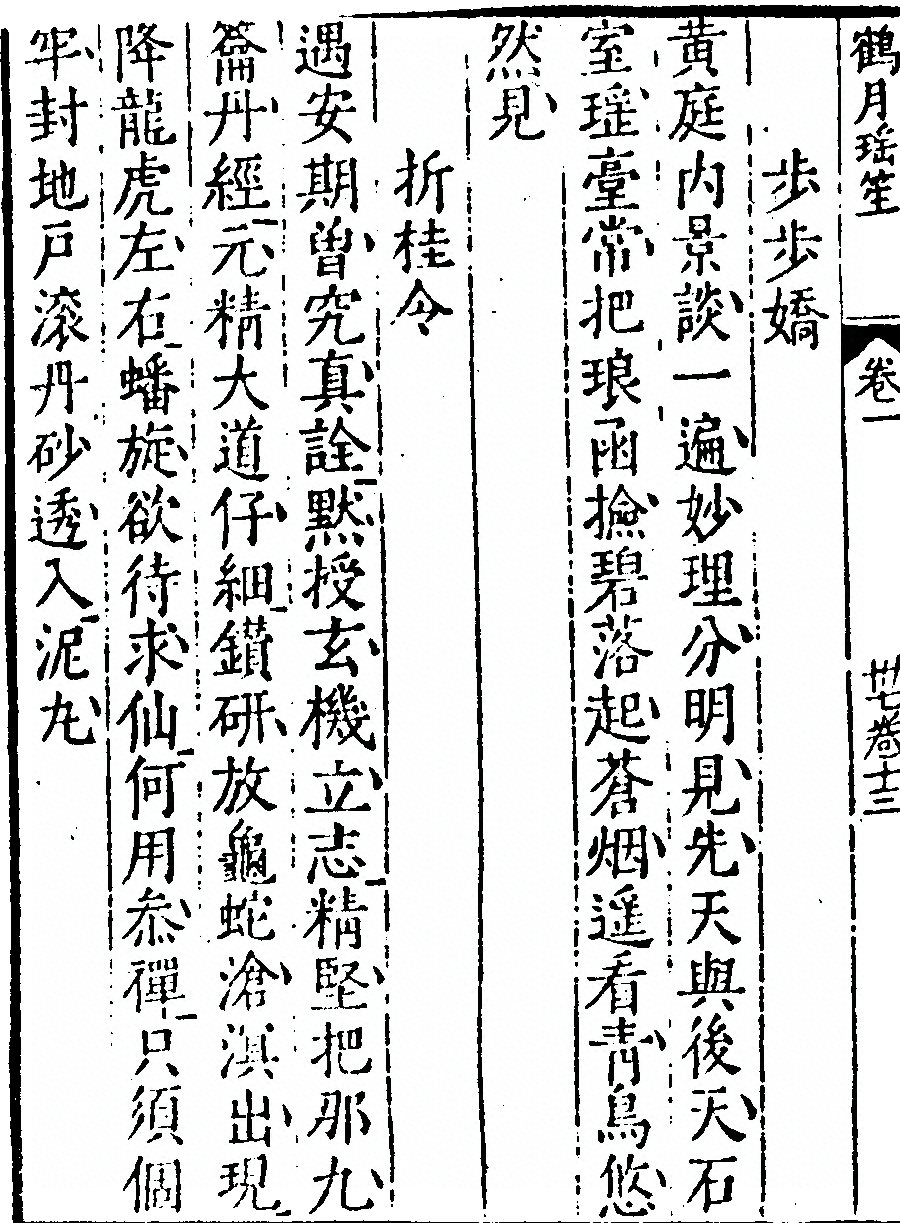 鶴月瑤笙 卷一 卅七卷十三
步步嬌
黃庭内景談一遍妙理分明見先天與後天石
室瑶臺常把琅函撿碧落起蒼烟遥看青鳥悠
然見
折桂令
遇安期曾究真詮默授玄機立志精堅把那九
籥丹經元精大道仔細鑚研放龜蛇滄溟出現
降龍虎左右蟠旋欲待求仙何用叅禪只須個
牢封地戸滚丹砂透入泥丸